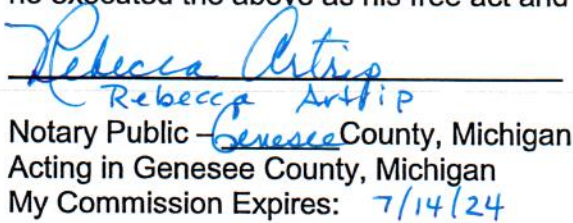 he executed the above as his free act and
Rebecca Artrip
Rebecca Artrip
Notary Public – Genesee County, Michigan
Acting in Genesee County, Michigan
My Commission Expires: 7/14/24